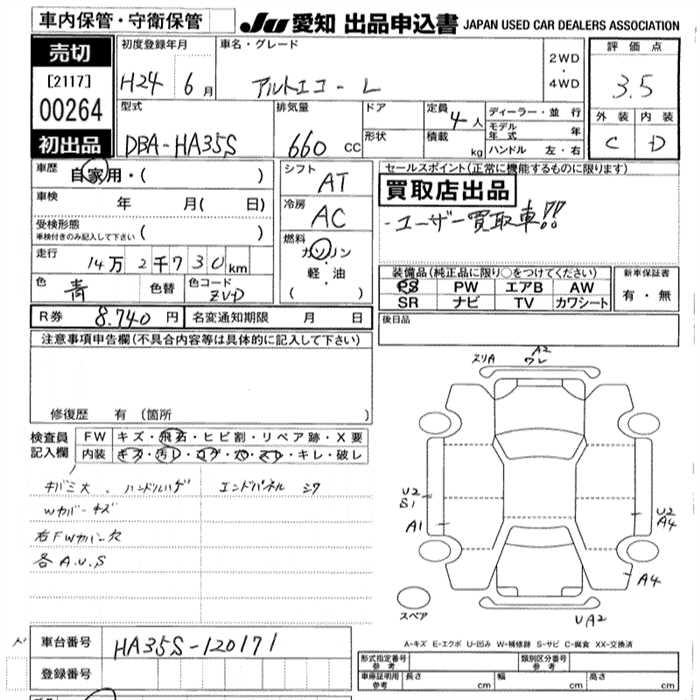 車内保管・守衛保管
JU 愛知 出品申込書 JAPAN USED CAR DEALERS ASSOCIATION
売切
[2117]
00264
初出品
初度登録年月
H24 6月
車名・グレード
アルトエコ-L
2WD
・
4WD
評価点
3.5
外装 内装
C D
型式
DBA-HA35S
排気量
660 CC
ドア
形状
定員 4人
積載 kg
ディーラー・並行
モデル年式 年
ハンドル 左・右
車歴 自家用・( )
車検 年 月( 日)
受検形態
車検付きのみ記入して下さい ( )
走行 14万2千730km
色 青 色替 色コード ZVD
シフト AT
冷房 AC
燃料 ガソリン
・
軽・油
( )
セールスポイント(正常に機能するものに限ります)
買取店出品
・ユーザー買取車!!
装備品(純正品に限り○をつけてください)
PS PW エアB AW
SR ナビ TV カワシート
新車保証書
有・無
R券 8,740円 名変通知期限 月 日
後日品
注意事項申告欄(不具合内容等は具体的に記入して下さい)
修復歴 有 (箇所 )
検査員記入欄
FW キズ・飛石・ヒビ割・リペア跡・X要
内装 キズ・汚レ・コゲ・穴・スレ・キレ・破レ
キバミ大、ハンドルハゲ エンドパネル シワ
Wカバーキズ
右FWカバー欠
各A.U.S
スリA
A2
ワレ
U2
S1
A1
U2
A4
A4
UA2
スペア
A-キズ E-エクボ U-凹み W-補修跡 S-サビ C-腐食 XX-交換済
車台番号 HA35S-120171
登録番号
形式指定番号 参考
類別区分番号 参考
車庫証明用 参考 長さ cm 幅 cm 高さ cm